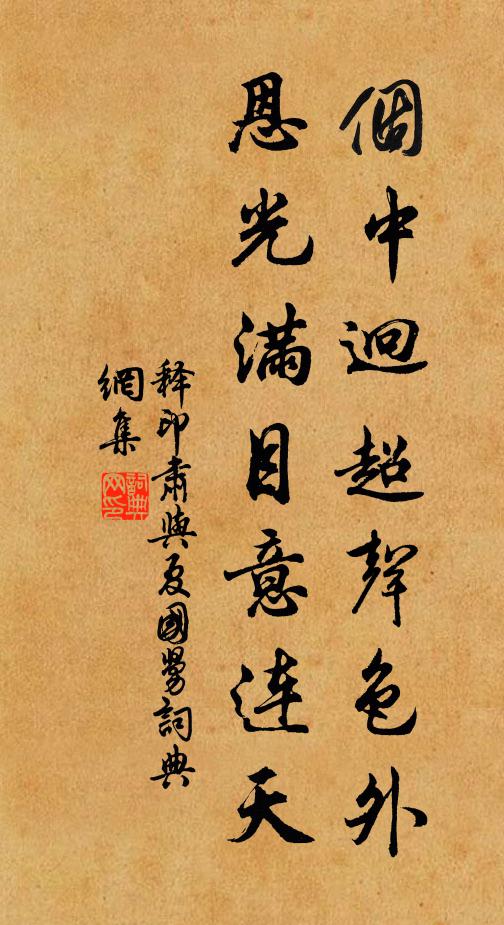 個中迥超聲色外
恩光滿目意連天
釋印肅與夏國勞詞典
網集
詞典網印